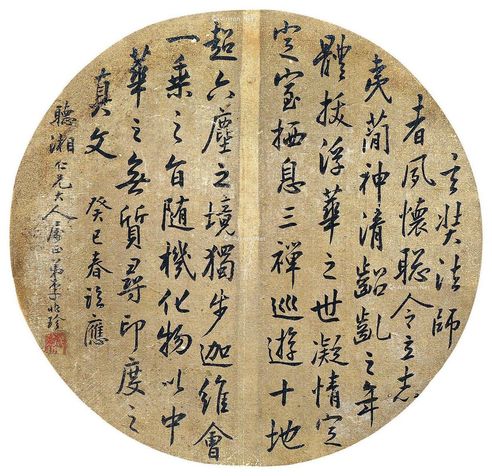 玄奘法師
者夙懷聰令立志
夷簡神清齠齔之年
體拔浮華之世凝情定
定室栖息三禪巡遊十地
超六塵之境獨步迦維會
一乘之旨隨機化物以中
華之無質尋印度之
真文 癸巳春 應
聽湘仁兄大人屬正弟李 珍
Artron.Net